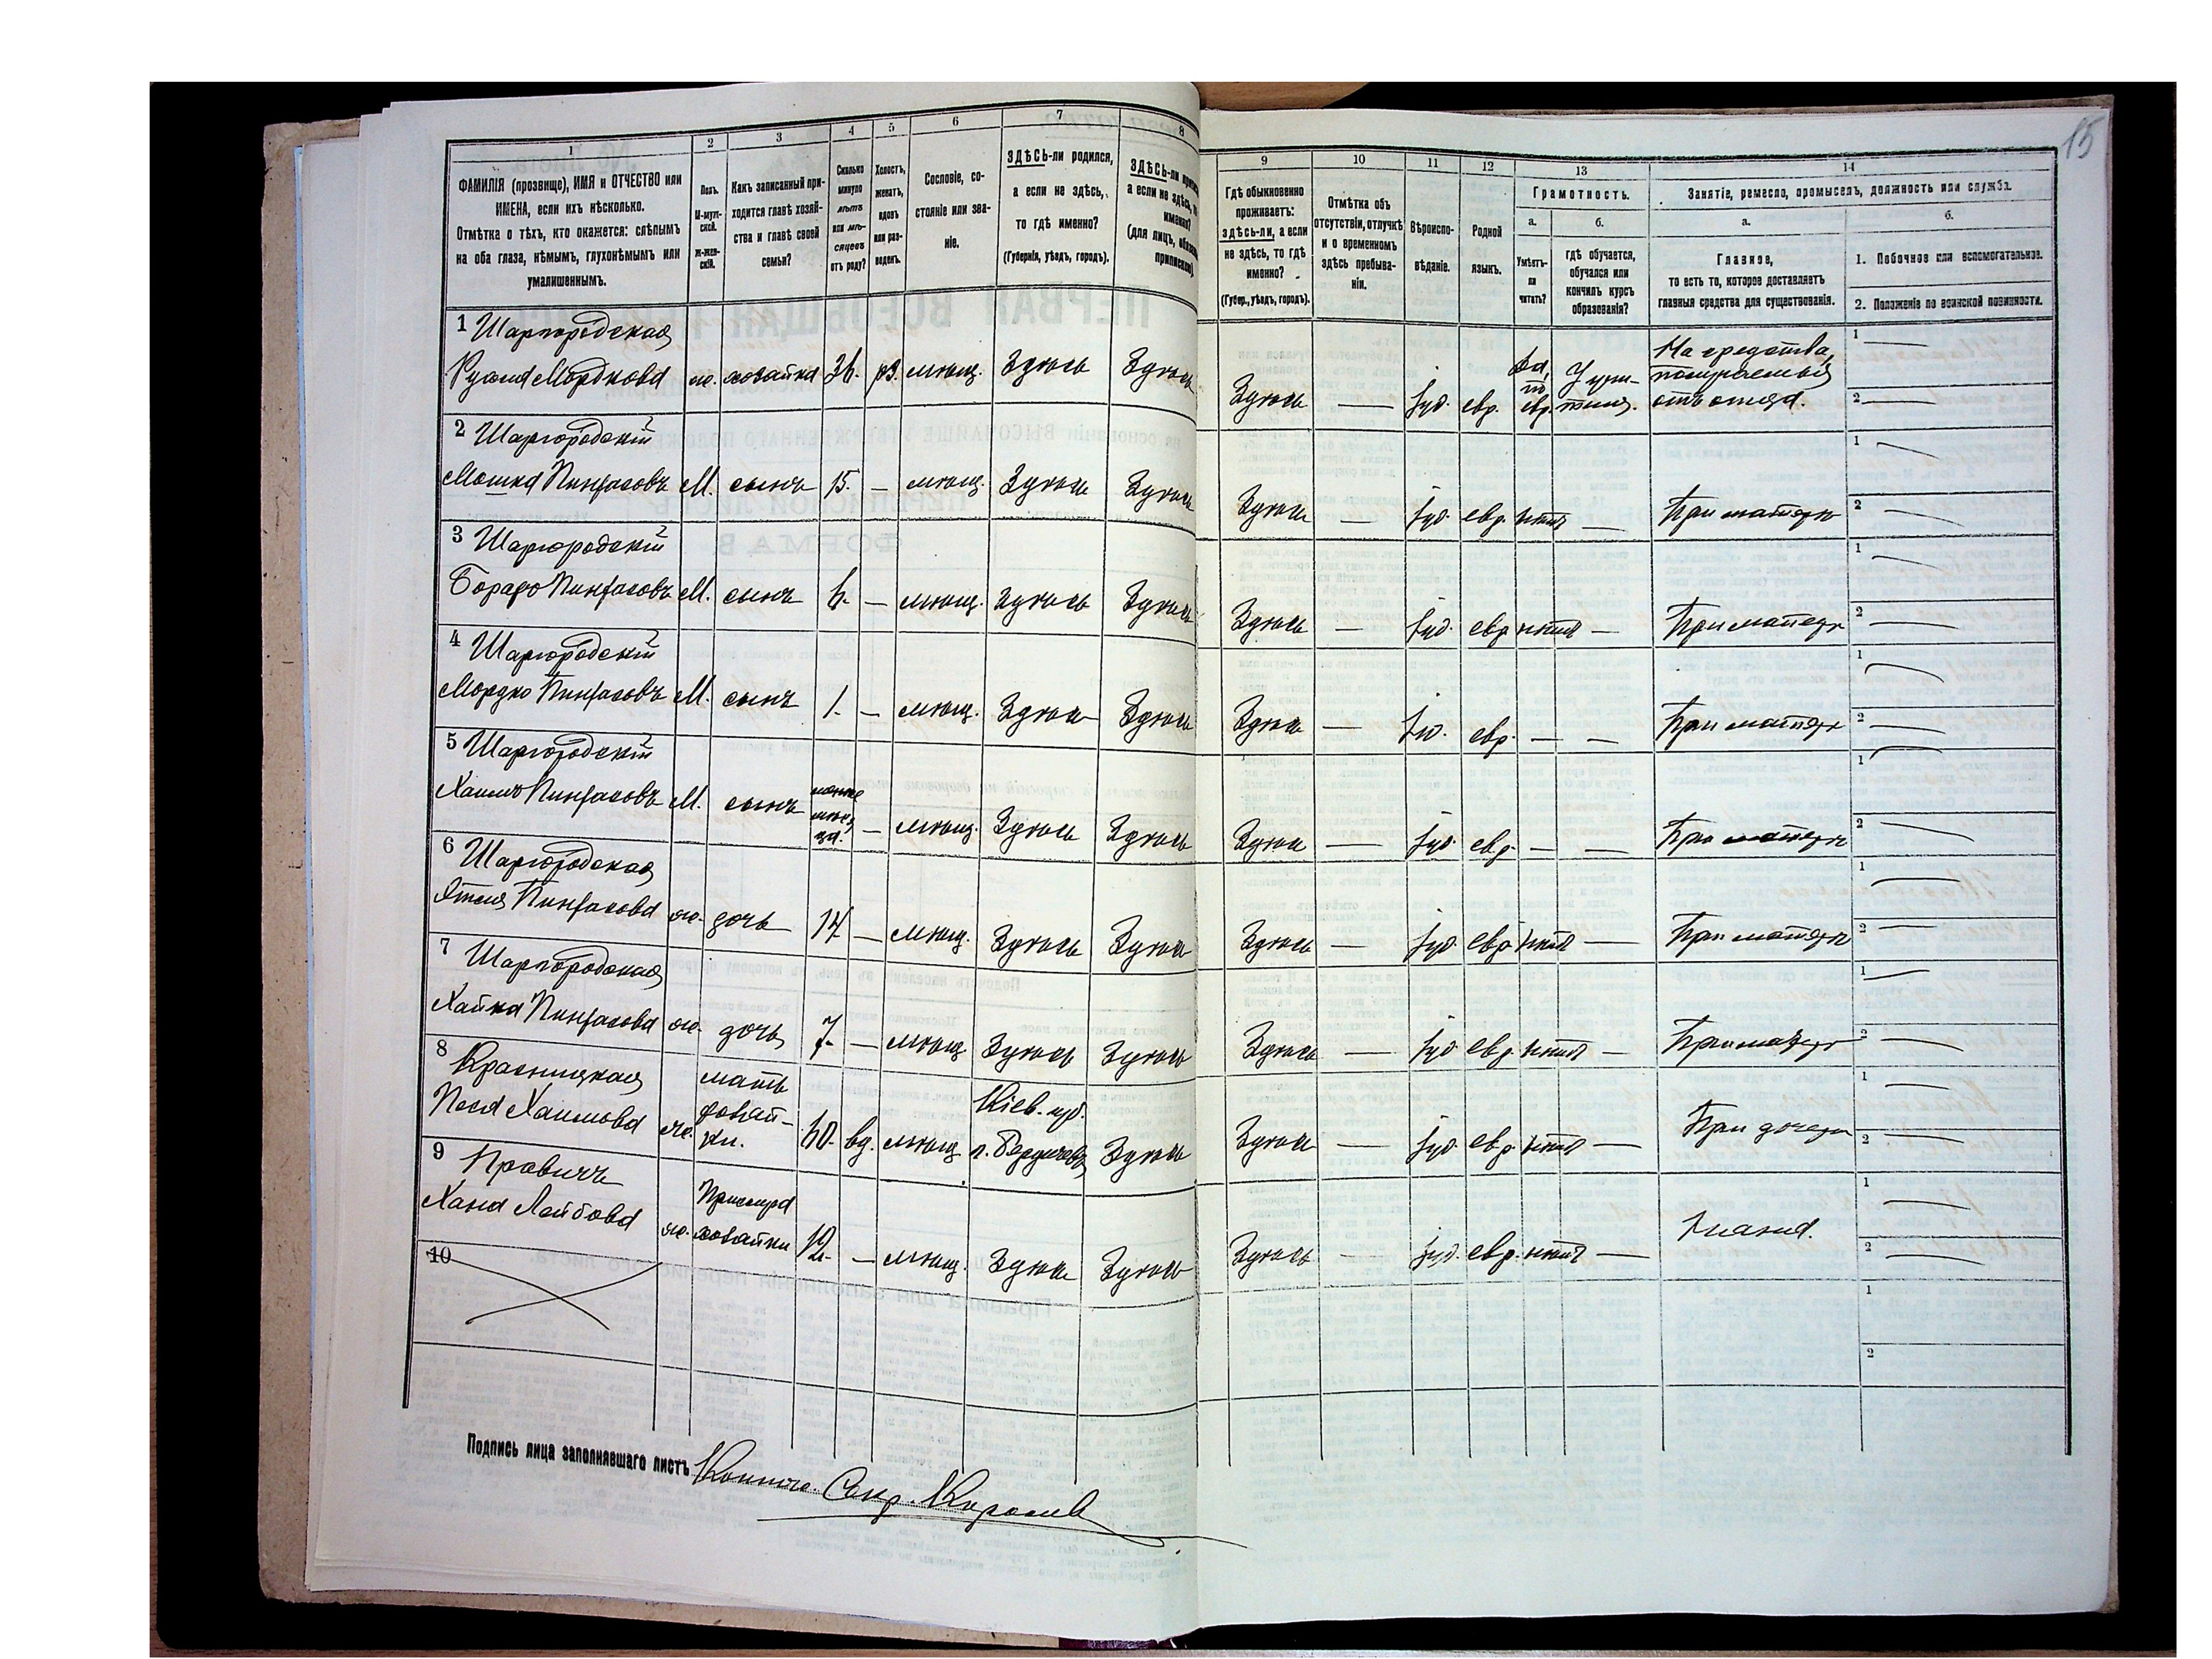 15
1 2 3 4 5 6 7 8
ФАМИЛІЯ (прозвище), ИМЯ и ОТЧЕСТВО или
ИМЕНА, если ихъ нѣсколько.
Отмѣтка о тѣхъ, кто окажется: слѣпымъ
на оба глаза, нѣмымъ, глухонѣмымъ или
умалишеннымъ.
Полъ.
М-муж-
ской.
Ж-жен-
скій.
Какъ записанный при-
ходится главѣ хозяй-
ства и главѣ своей
семьи?
Сколько
минуло
лѣтъ
или мѣ-
сяцевъ
отъ роду?
Холостъ,
женатъ,
вдовъ
или раз-
веденъ.
Сословіе, со-
стояніе или зва-
ніе.
ЗДѢСЬ-ли родился,
а если не здѣсь,
то гдѣ именно?
(Губернія, уѣздъ, городъ).
ЗДѢСЬ-ли
а если не здѣсь,
именно?
(для лицъ,
9 10 11 12 13 14
Гдѣ обыкновенно
проживаетъ:
здѣсь-ли, а если
не здѣсь, то гдѣ
именно?
(Губер., уѣздъ, городъ).
Отмѣтка объ
отсутствіи, отлучкѣ
и о временномъ
здѣсь пребыва-
ніи.
Вѣроиспо-
вѣданіе.
Родной
языкъ.
Грамотность.
а.
Умѣетъ-
ли
читать?
б.
гдѣ обучается,
обучался или
кончилъ курсъ
образованія?
Занятіе, ремесло, промыселъ, должность или служба.
а.
Главное,
то есть то, которое доставляетъ
главныя средства для существованія.
б.
1. Побочное или вспомогательное.
2. Положеніе по воинской повинности.
1 Шаргородская
Мордкова ж. хозяйка 36. мѣщ. Здѣсь Здѣсь
Здѣсь — Іуд. евр.
Да,
по
евр.
У учи-
теля.
На средства,
получаемыя
отъ отца.
1 —
2 —
2 Шаргородскій
Мошка Пинхасовъ М. сынъ 15. — мѣщ. Здѣсь Здѣсь
Здѣсь — Іуд. евр. нѣтъ — При матери
1 —
2 —
3 Шаргородскій
Пинхасовъ М. сынъ 6. — мѣщ. Здѣсь Здѣсь
Здѣсь — Іуд. евр. нѣтъ — При матери
1 —
2 —
4 Шаргородскій
Мордко Пинхасовъ М. сынъ 1. — мѣщ. Здѣсь Здѣсь
Здѣсь — Іуд. евр. — — При матери
1 —
2 —
5 Шаргородскій
Хаимъ Пинхасовъ М. сынъ
менѣе
мѣся
ца.
— мѣщ. Здѣсь Здѣсь
Здѣсь — Іуд. евр. — — При матери
1 —
2 —
6 Шаргородская
Пинхасова ж. дочь 14 — мѣщ. Здѣсь Здѣсь
Здѣсь — Іуд. евр. нѣтъ — При матери
1 —
2 —
7 Шаргородская
Хайка Пинхасова ж. дочь 7. — мѣщ. Здѣсь Здѣсь
Здѣсь — Іуд. евр. нѣтъ — При матери
1 —
2 —
8 Красницкая
Песя Хаимова ж.
мать
хозяй-
ки.
60. вд. мѣщ.
Кіев. губ.
г. Бердичевъ
Здѣсь
Здѣсь — Іуд. евр. нѣтъ — При дочери
1 —
2 —
9
Хана Лейбова ж.
Прислуга
хозяйки
12. — мѣщ. Здѣсь Здѣсь
Здѣсь — Іуд. евр. нѣтъ — Няня.
1 —
2 —
10
1
2
Подпись лица заполнявшаго листъ